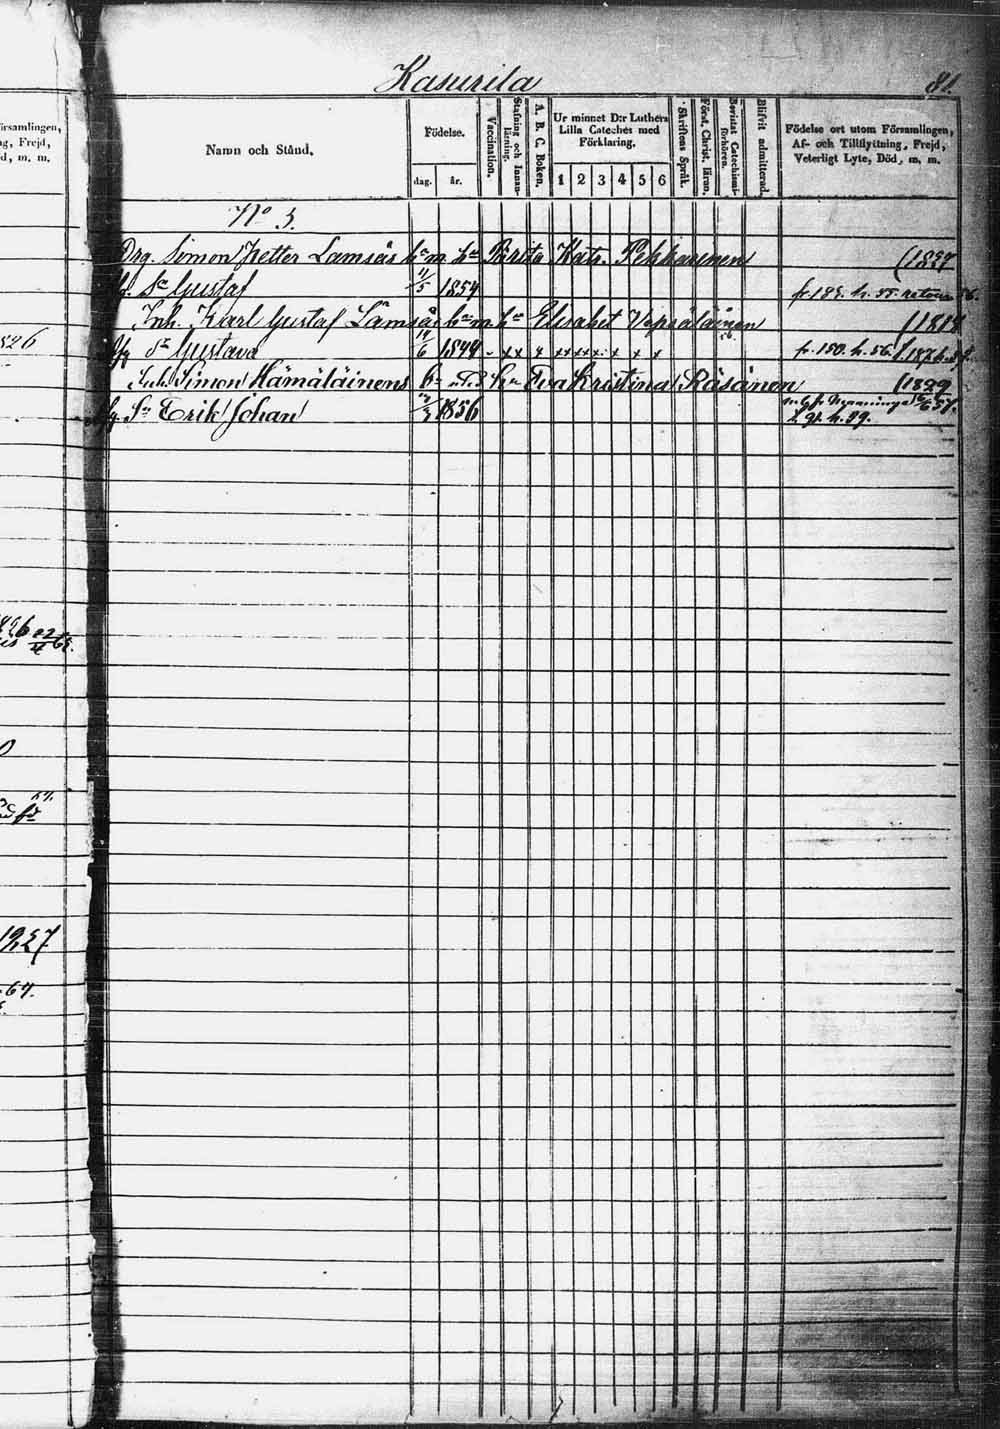 Kasurila 81.
Namn och Stånd.
Födelse.
dag. år.
Vaccination.
Stafning och Innan-
läsning.
A. B. C. Boken.
Ur minnet D:r Luthers
Lilla Cateches med
Förklaring.
1 2 3 4 5 6
Skriftens Språk.
Först. Christ. läran.
Bevistat Catechismi-
förhören.
Blifvit admitterad.
Födelse ort utom Församlingen,
Af- och Tillflyttning, Frejd,
Veterligt Lyte, Död, m. m.
No 3.
Drg. Simon Petter Lamsäs hr m. hu Brita Katr. Pekkarinen (1827
Sn Gustaf 11/5 1854 fr. 185. h. 55.
Inh. Karl Gustaf Lamsäs hr m hu Elisabet Vepsäläinen (1818
Dr Gustava 14/6 1849 - x x x x x x x x x x fr. 150. h. 56.
Inh. Simon Hämäläinens hu Eva Kristina Räsänen (1829
Sn Erik Johan 1856
h. 59.
församlingen,
ng, Frejd,
d, m. m.
826
1827
67.